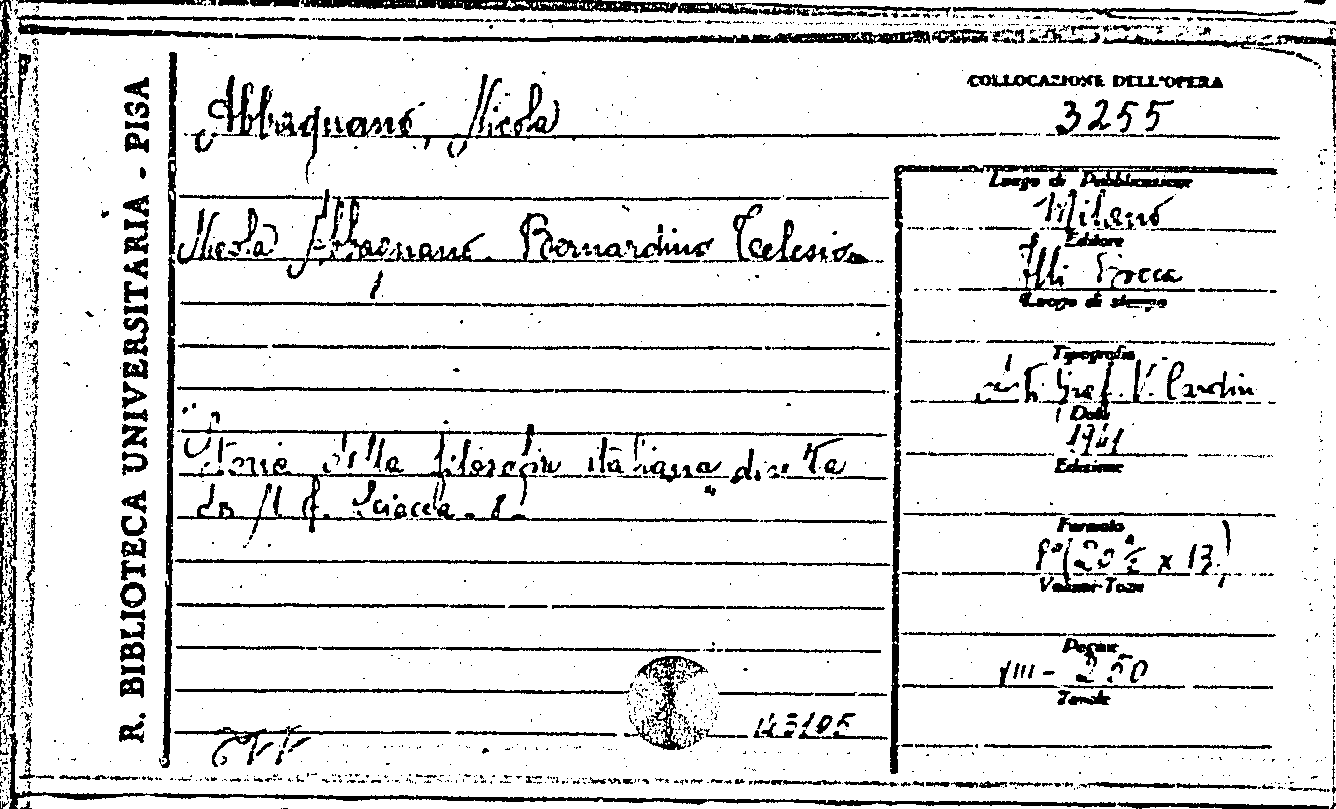 R. BIBLIOTECA UNIVERSITARIA - PISA
COLLOCAZIONE DELL'OPERA
3255
Abbagnano, Nicola
Nicola Abbagnano. Bernardino Telesio.
Luogo di Pubblicazione
Milano
Editore
Flli Bocca
Luogo di stampa
Tipografia
Graf. V. Cardin
Data
1941
Edizione
Storia della filosofia italiana diretta
da M. F. Sciacca.
Formato
8° (20 ½ x 13)
Volumi-Tomi
Pagine
VIII - 250
Tavole
143105